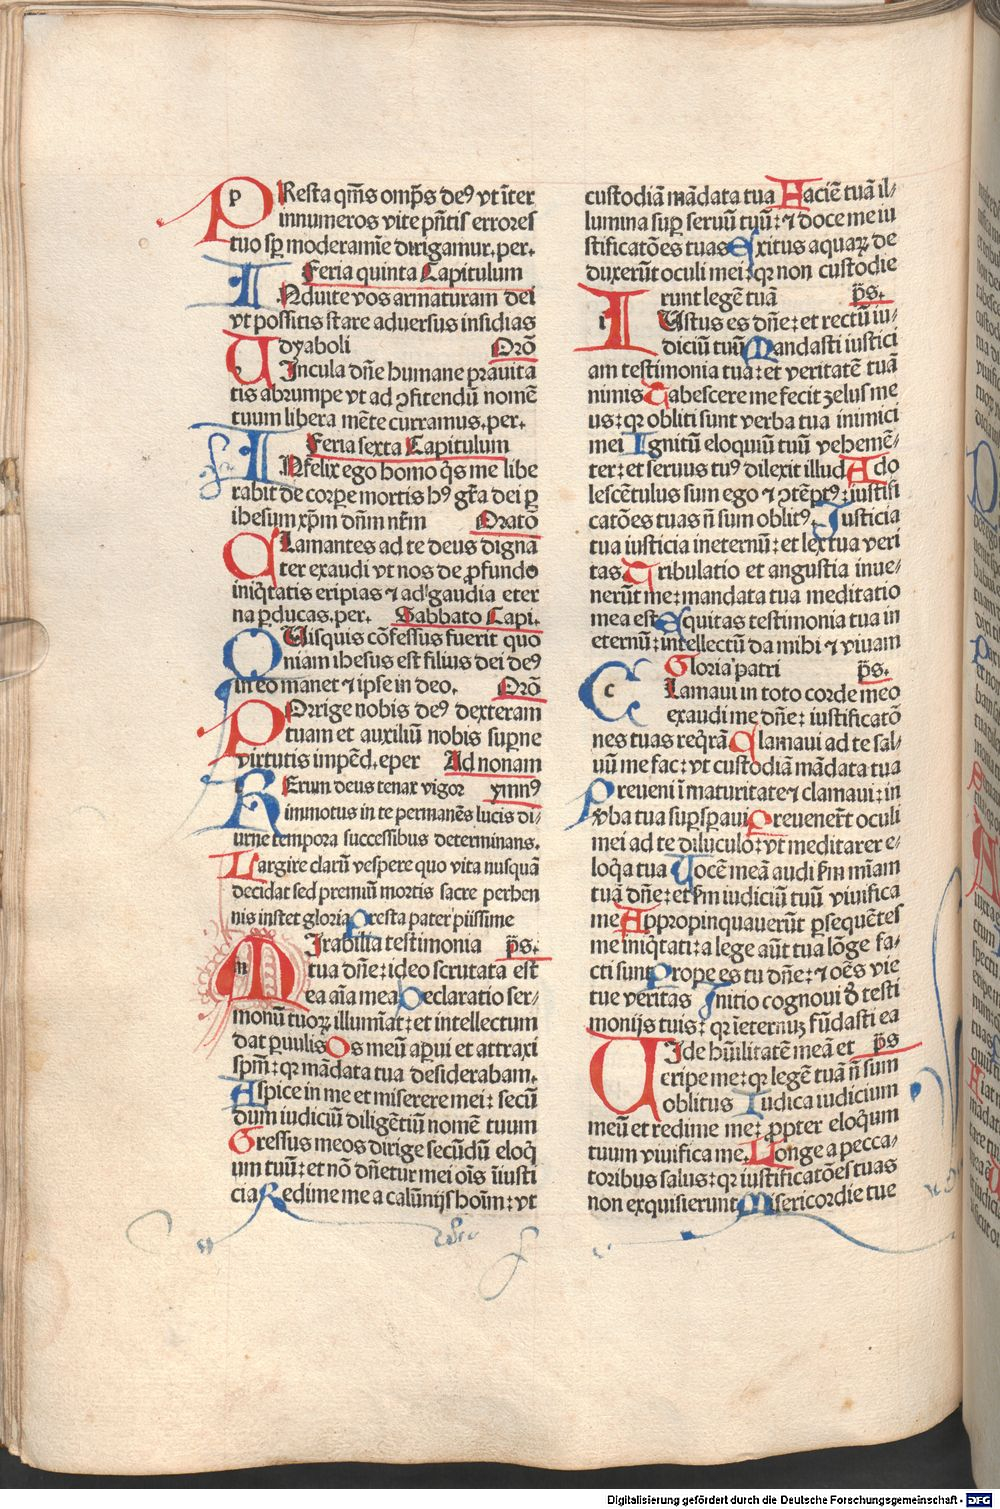 PResta qm̄s omp̄s deꝰ vt īter
innumeros vite pn̄tis errores
tuo sꝑ moderamīe dirigamur. per.
Feria quinta Capitulum
INduite vos armaturam dei
vt possitis stare adversus insidias
dyaboli Orō
UIncula dn̄e humane prauita
tis abrumpe vt ad ꝯfitendū nomē
tuum libera mēte curramus. per.
Feria sexta Capitulum
INfelix ego homo q̇s me libe
rabit de corpe mortis hꝰ gr̄a dei ꝑ
ihesum xp̄m dn̄m nr̄m Oratō
CLamantes ad te deus digna
ter exaudi vt nos de ꝓfundo
iniq̇tatis eripias ⁊ ad gaudia eter
na ꝑducas. per. Sabbato Capi.
QUisquis cōfessus fuerit quo
niam ihesus est filius dei deꝰ
in eo manet ⁊ ipse in deo. Orō
POrrige nobis deꝰ dexteram
tuam et auxiliū nobis suꝑne
virtutis impēd. eper Ad nonam
RErum deus tenax vigor ymnꝰ
immotus in te permanēs lucis di/
urne tempora successibus determinans.
Largire clarū vespere quo vita nusquā
decidat sed premiū mortis sacre perhen
nis instet gloria Presta pater piissime
MIrabilia testimonia p̄s.
tua dn̄e: ideo scrutata est
ea aīa mea Declaratio ser/
monū tuoꝝ illumīat: et intellectum
dat ꝑuulis Os meū aꝑui et attraxi
spm̄: qꝛ mādata tua desiderabam.
Aspice in me et miserere mei: secū
dum iudiciū diligētiū nomē tuum
Gressus meos dirige secūdū eloq̇
um tuū: et nō dn̄etur mei oīs īiusti
cia Redime me a calūnijs hoīm: vt
custodiā mādata tua Faciē tuā il/
lumina suꝑ seruū tuū: ⁊ doce me iu
stificatōes tuas Exitus aquaꝝ de
duxerūt oculi mei: qꝛ non custodie
runt legē tuā p̄s.
IUstus es dn̄e: et rectū iu/
diciū tuū Mandasti iustici
am testimonia tua: et veritatē tuā
nimis Tabescere me fecit zelus me
us: qꝛ obliti sunt verba tua inimici
mei Ignitū eloquiū tuū vehemē/
ter: et seruus tuꝰ dilexit illud Ado
lescētulus sum ego ⁊ ꝯtēptꝰ: iustifi
catōes tuas n̄ sum oblitꝰ. Iusticia
tua iusticia ineternū: et lex tua veri
tas Tribulatio et angustia inue/
nerūt me: mandata tua meditatio
mea est Equitas testimonia tua in
eternū: intellectū da mihi ⁊ viuam
Gloria patri p̄s.
CLamaui in toto corde meo
exaudi me dn̄e: iustificatō
nes tuas req̇rā Clamaui ad te sal/
uū me fac: vt custodiā mādata tua
Preueni ī maturitate ⁊ clamaui: in
v̄ba tua suꝑsꝑaui Preuenert̄ oculi
mei ad te diluculo: vt meditarer e/
loq̇a tua Uocē meā audi scd̄m mīam
tuā dn̄e: et scd̄m iudiciū tuū viuifica
me Appropinquauerūt ꝑsequētes
me iniq̇tati: a lege aūt tua lōge fa/
cti sunt Prope es tu dn̄e: ⁊ oēs vie
tue veritas Initio cognoui de testi
monijs tuis: qꝛ īeternuꝫ fūdasti ea
UIde hūilitatē meā et p̄s
eripe me: qꝛ legē tuā n̄ sum
oblitus Iudica iudicium
meū et redime me: ꝓpter eloq̇um
tuum viuifica me. Longe a pecca/
toribus salus: qꝛ iustificatōes tuas
non exquisierunt Misericordie tue
Digitalisierung gefördert durch die Deutsche Forschungsgemeinschaft - DFG